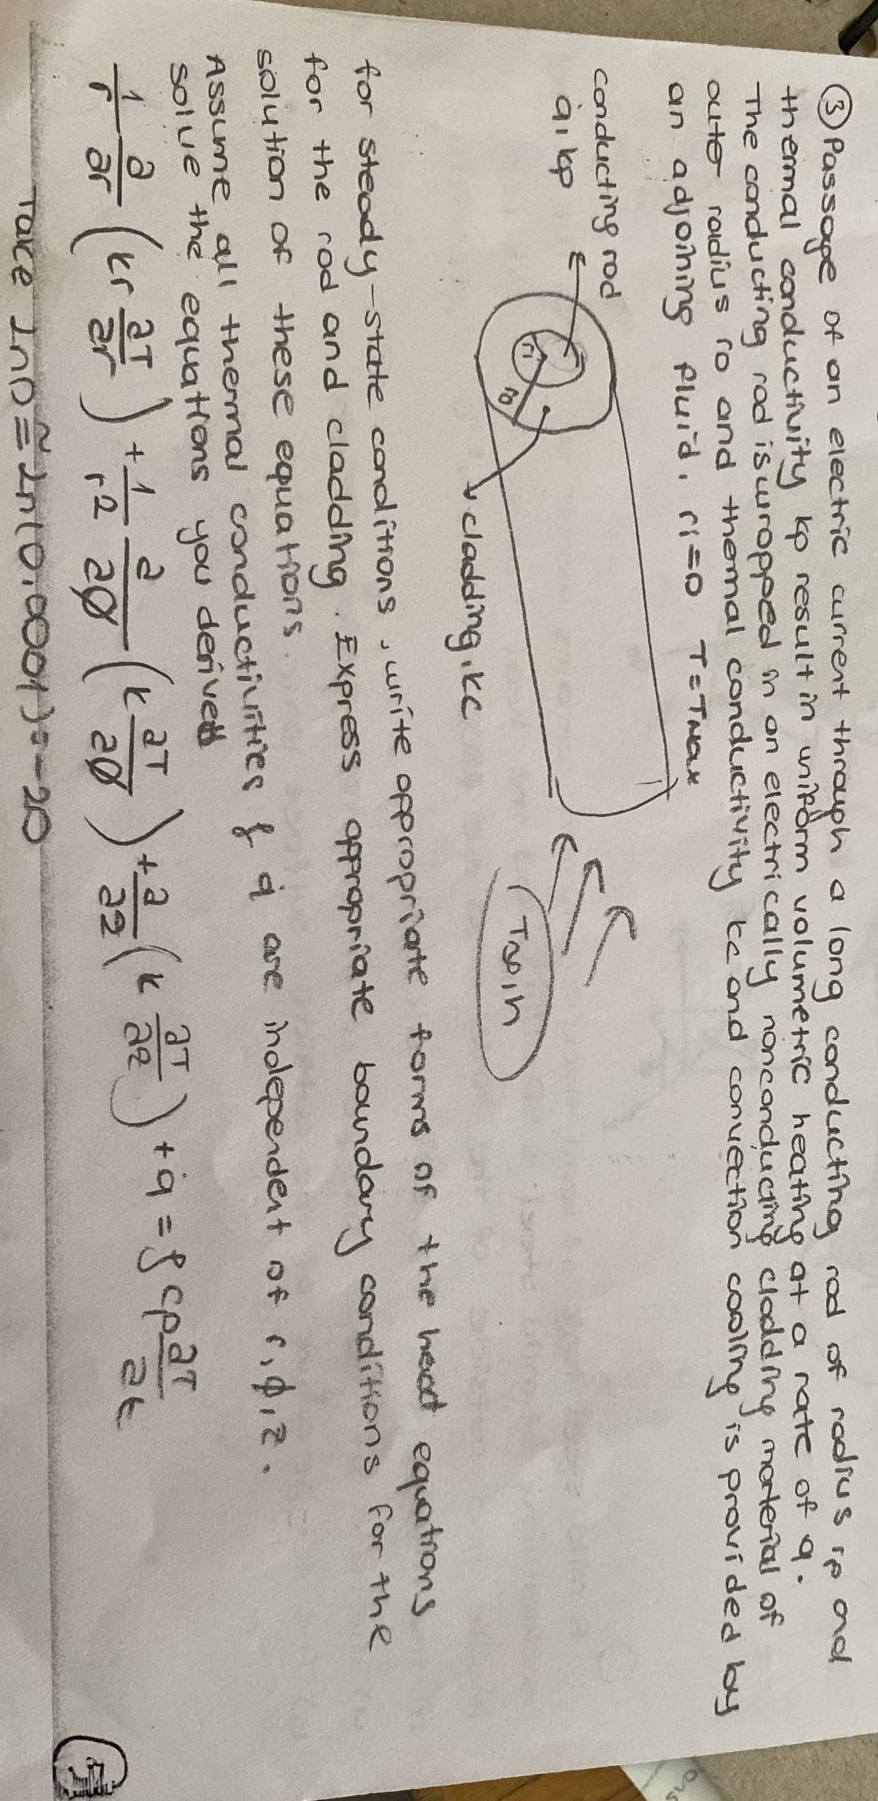 ③ Passage of an electric current through a long conducting rod of radius rp and
thermal conductivity kp result in uniform volumetric heating at a rate of q.
The conducting rod is wropped in an electrically nonconducting cladding material of
outer radius ro and thermal conductivity kc and convection cooling is provided by
an adjoining fluid. ri=0 T=Tmax
conducting rod
q̇, kp
ri
ro
cladding, kc
T∞, h
for steady-state conditions, write appropriate forms of the heat equations
for the rod and cladding. Express appropriate boundary conditions for the
solution of these equations.
Assume all thermal conductivities & q̇ are independent of r, ϕ, z.
solve the equations you derived
1/r ∂/∂r (kr ∂T/∂r) + 1/r² ∂/∂ϕ (k ∂T/∂ϕ) + ∂/∂z (k ∂T/∂z) + q̇ = ρ cp ∂T/∂t
Take ln0 ≅ ln(0,0001) = -20